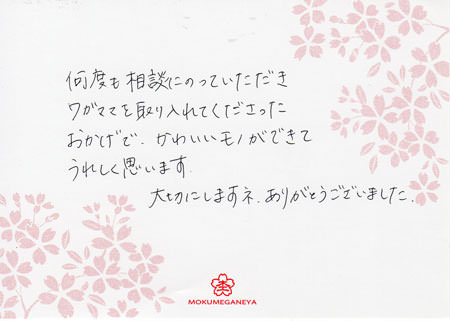 何度も相談にのっていただき
ワガママを取り入れてくださった
おかげで、かわいいモノができて
うれしく思います.
大切にしますネ.ありがとうございました.
MOKUMEGANEYA